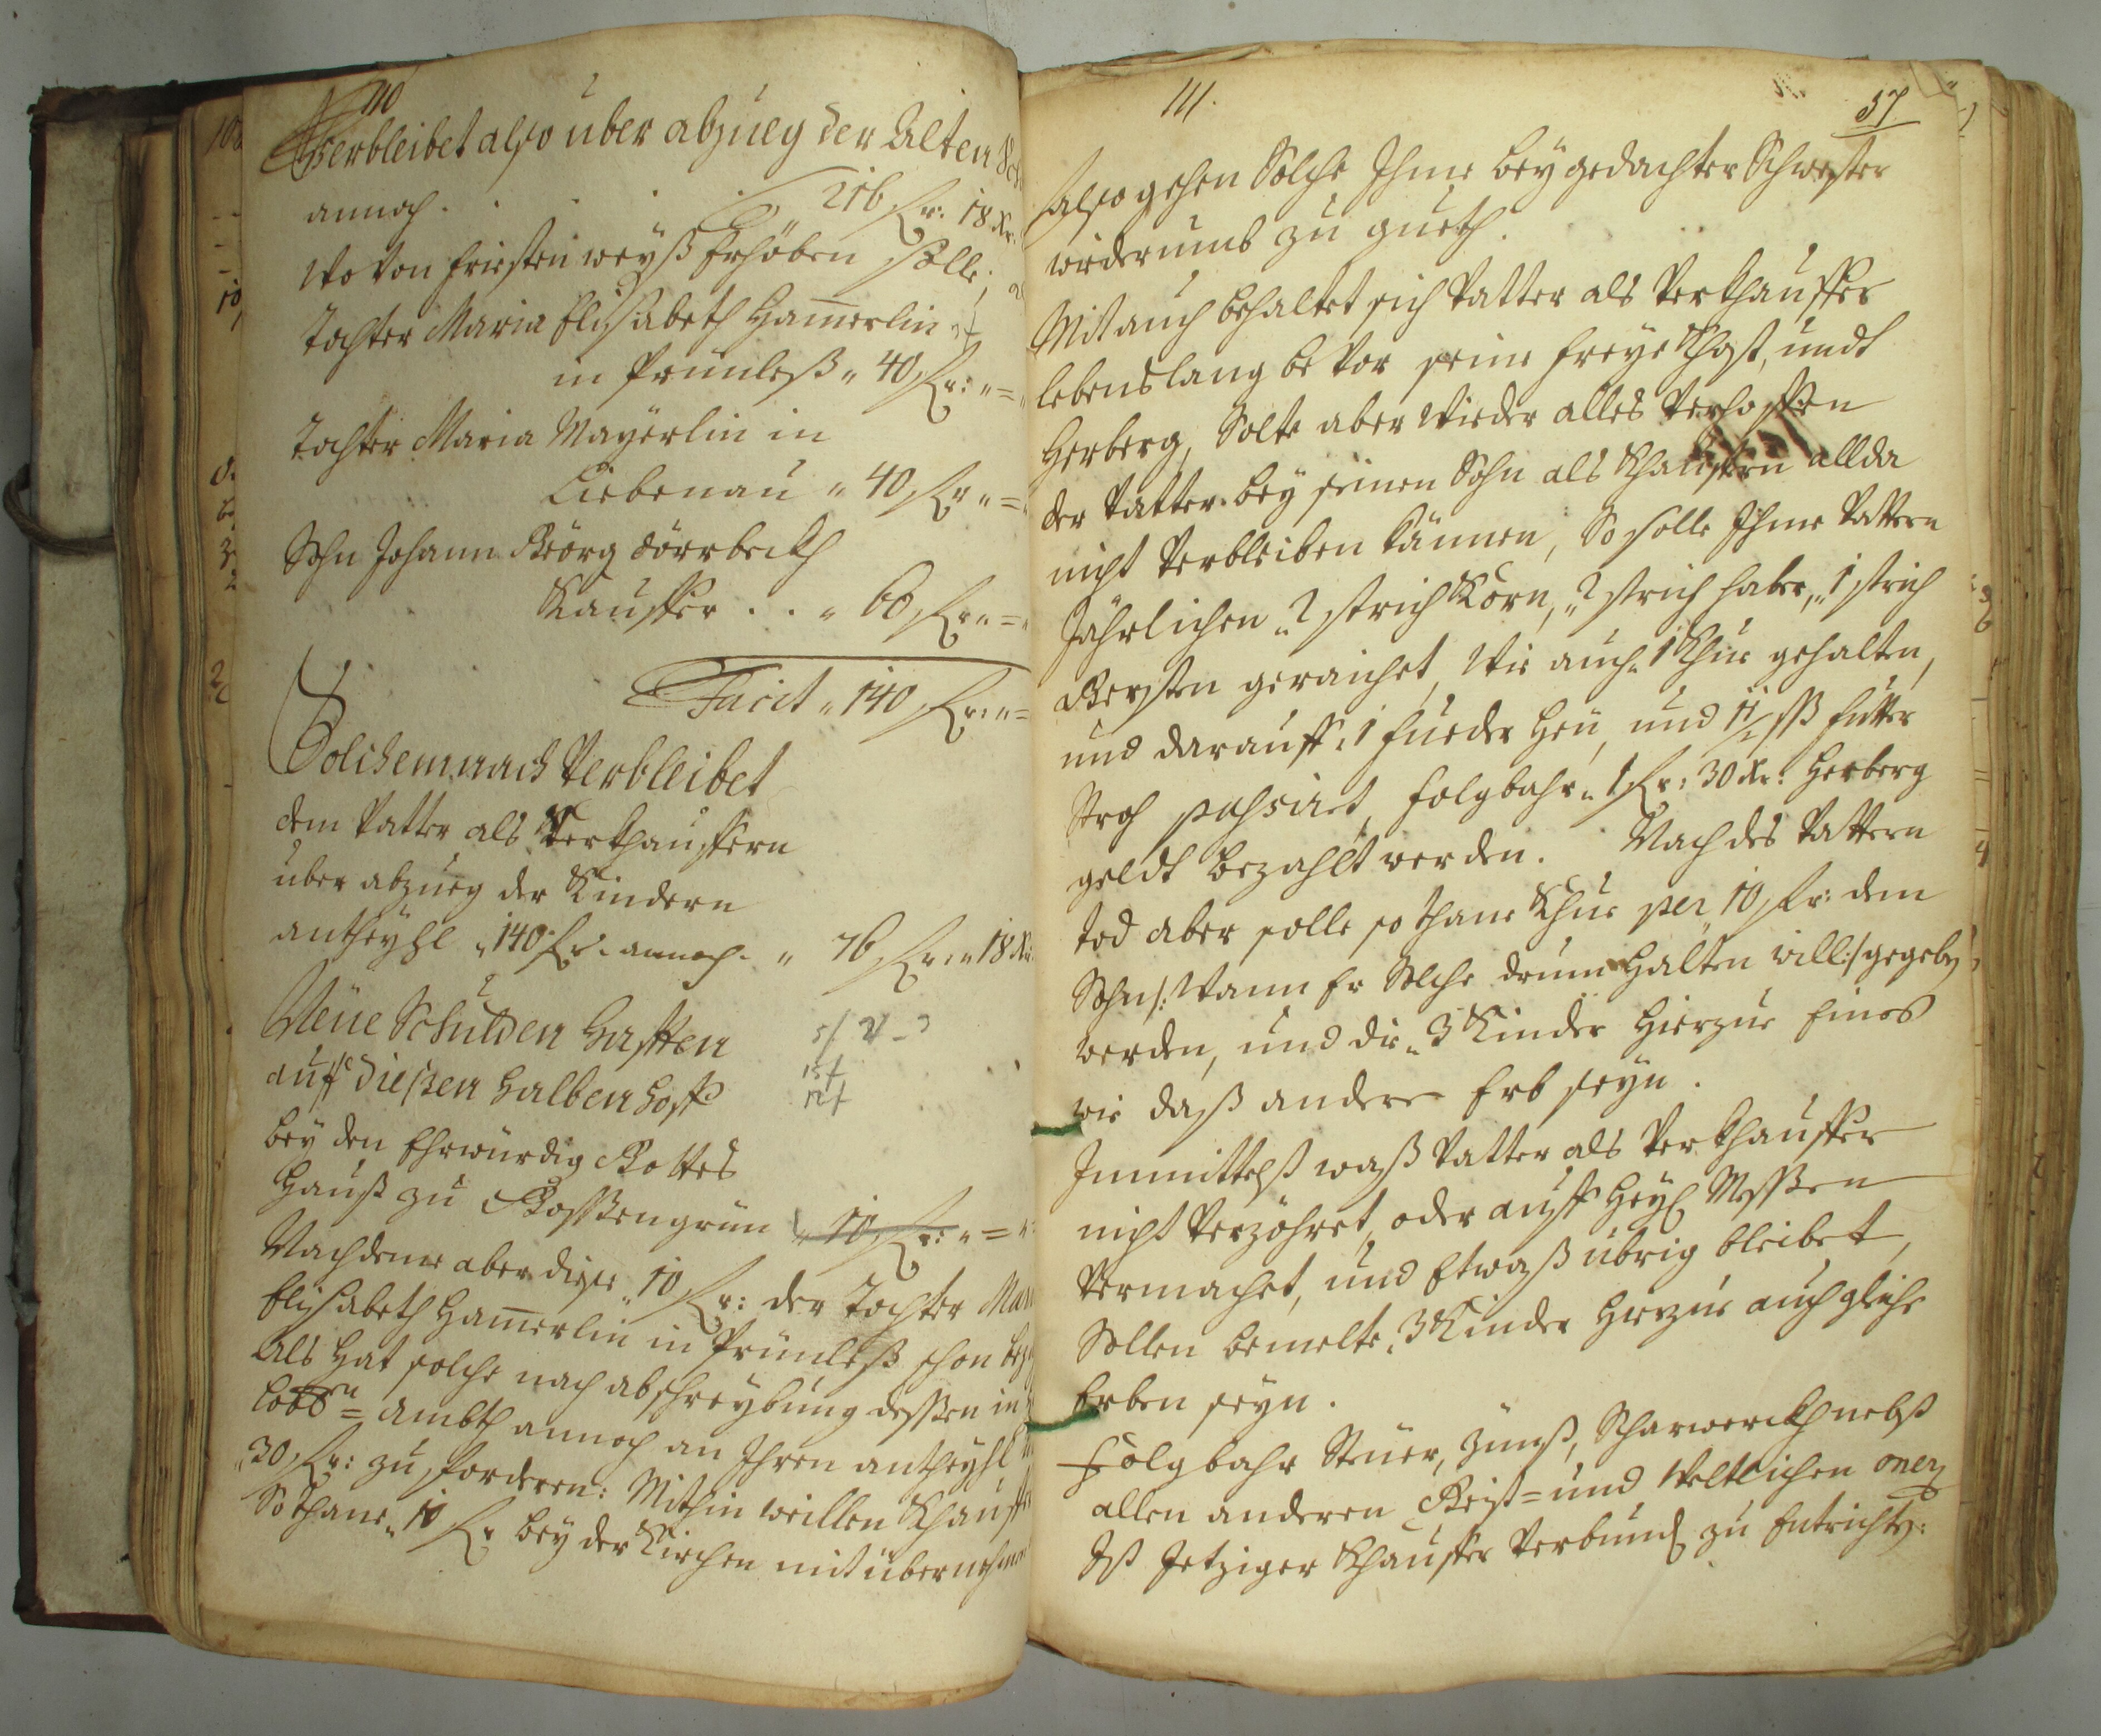 110
Verbleibet also über abzueg der Alten
annoch . . . „ 216 fr: 18 xr:
Wovon fristenweyß Erhöben solle,
Tochter Maria Elisabeth Ham̄erlin
in Prünleß „ 40 fr: „ = „
Tochter Maria Mayerlin in
Liebenau „ 40 fr „ = „
Sohn Johann Geörg Dörrbeckh
Kauffer . . „ 60 fr „ = „
Facit „ 140 fr: „ =
Solchemnach Verbleibet
dem Vatter als Verkhauffern
über abzueg der Kindern
antheyhl „ 140 fr: annoch . „ 76 fr: „ 18 xr:
Neüe Schulden Hafften
auff dießen halben Hoff
bey den Ehrwürdig Gottes
Hauß zu Gossengrün „ 10 fr: „ = „
Nachdeme aber diese „ 10 fr: der Tochter
Elisabeth Ham̄erlin in Prünleß schon
Als hat solche nach abschreybung dessen in
Ambth annoch an Ihren antheyhl
„ 30 fr: zu forderen: Mithin weillen
Sothane „ 10 fr bey der Kirchen mit
111. 57
Also gehen Solche Ihme bey gedachter Schwester
widerumb zu gueth.
Mit auch behaltet sich Vatter als Verkhauffer
lebenslang bevor seine freye Khost, undt
Herberg, Solte aber Wieder alles Verhoffen
der Vatter bey seinen Sohn als Khauffern allda
nicht Verbleiben können, So solle Ihme Vattern
Jährlichen „ 2 strich Korn, „ 2 strich haber, „ 1 strich
Gersten geraichet, Wie auch „ 1 Khue gehalten,
und darauff „ 1 fueder Heü, und 1½ ßß futter
Stroh passiret, folgbahr „ 1 fr: 30 xr: Herberg
geldt bezahlt werden. Nach des Vattern
tod aber solle sothane Khue per 10 fr: dem
Sohn /: Wann Er Solche drum halten will :/ gegeben
werden, und die „ 3 Kinder hierzue Eines
wie daß andere Erb seyn.
Immittelß waß Vatter als Verkhauffer
nicht Verzöhret, oder auff Heyl Messen
Vermachet, und Etwaß übrig bleibet,
Sollen bemelte „ 3 Kinder hierzue auch gleiche
Erben seyn.
Folgbahr Steüer, Zünß, Scharwerckh nebst
allen anderen Geist= und Weltlichen
Ist Jetziger Khauffer Verbund zu Entrichten: